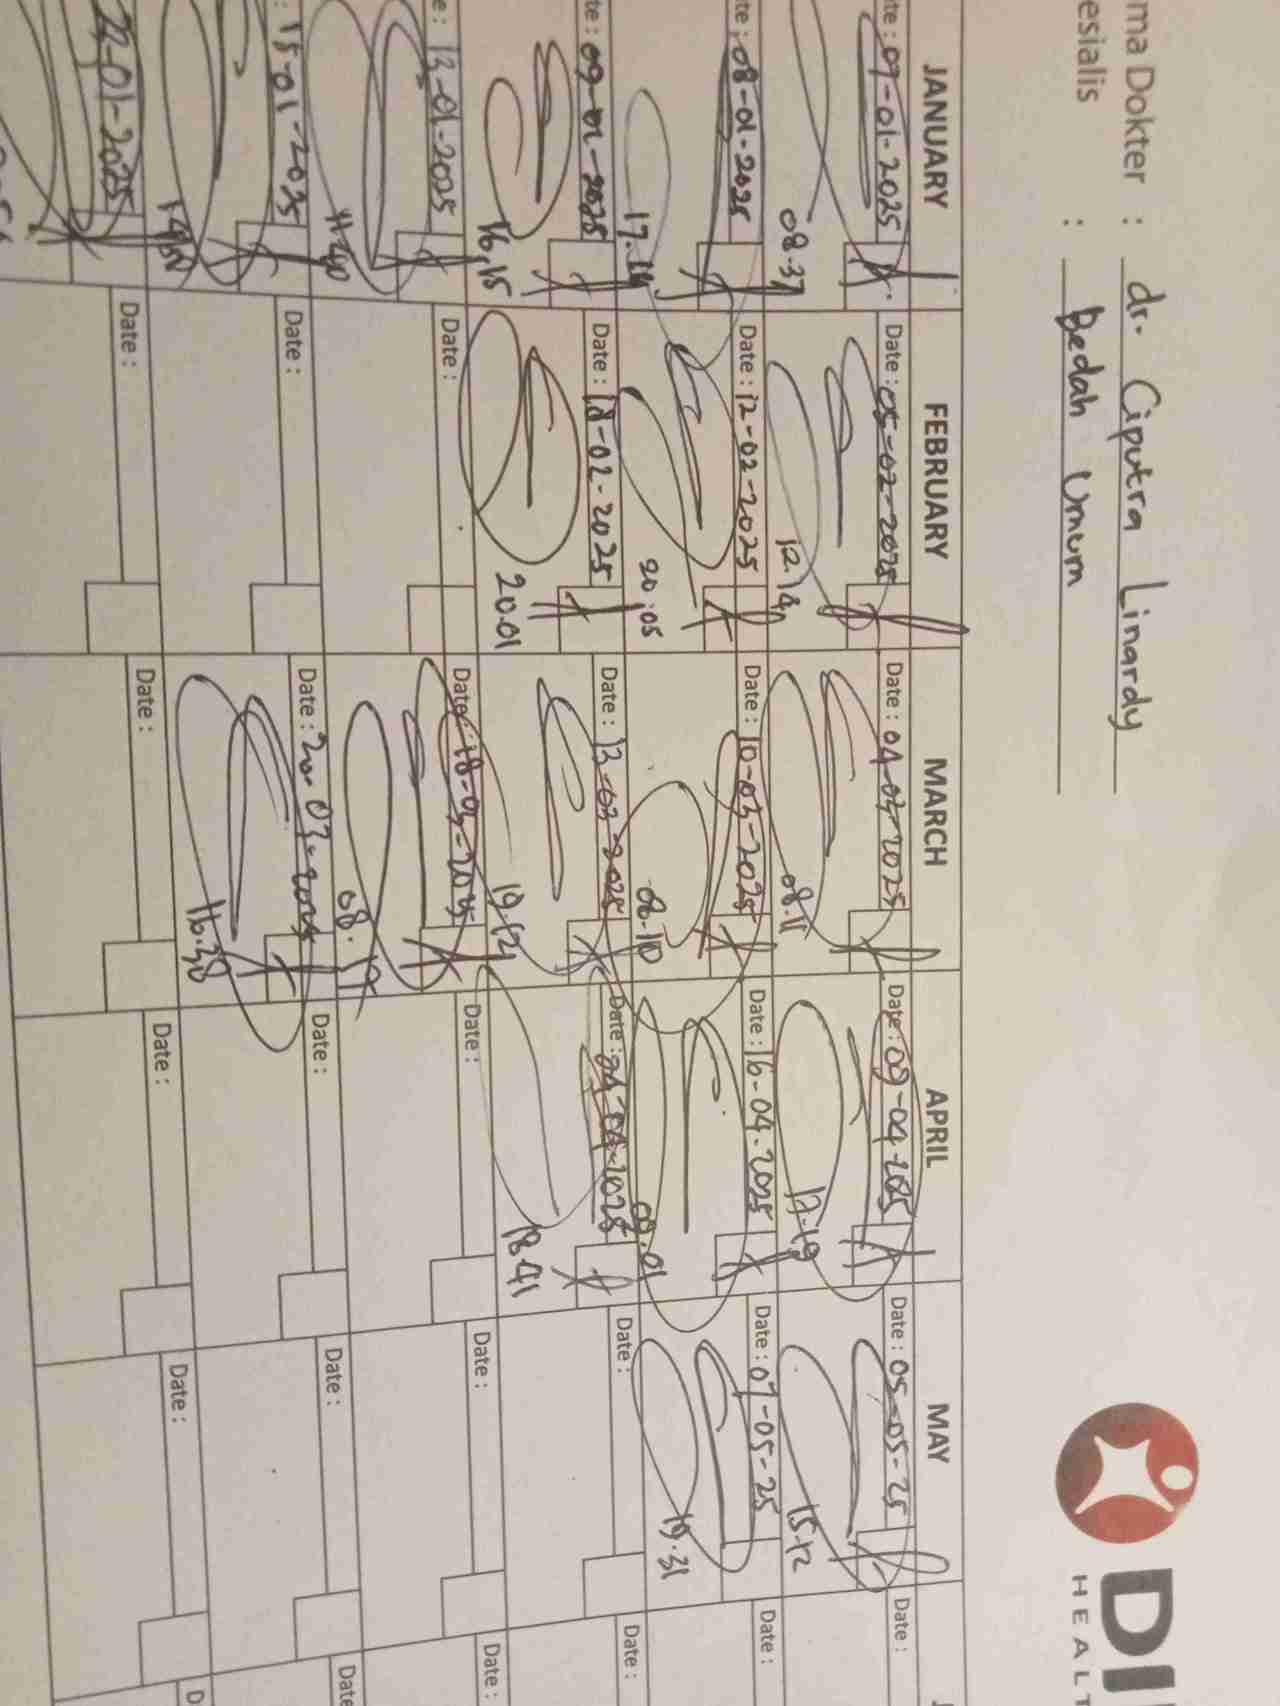 ma Dokter : dr. Ciputra Linardy
esialis : Bedah Umum
DI
HEALT
JANUARY FEBRUARY MARCH APRIL MAY J
te : 07-01-2025 Date : 05-02-2025 Date : 04-03-2025 Date : 09-04-2025 Date : 05-05-25 Date :
08.37 12.14 08.11 17.19 15.12
te : 08-01-2025 Date : 12-02-2025 Date : 10-03-2025 Date : 16-04-2025 Date : 07-05-25 Date :
17.14 20.05 08.10 08.01 19.31
te : 09-01-2025 Date : 18-02-2025 Date : 13-03-2025 Date : 24-04-2025 Date : Date :
16.15 20.01 19.12 18.41
e : 13-01-2025 Date : Date : 18-03-2025 Date : Date : Date :
11.40 08.17
: 15-01-2025 Date : Date : 20-03-2025 Date : Date : Date
16.38
22-01-2025 Date : Date : Date : Date : D